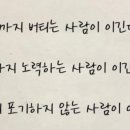 까지 버티는 사람이 이긴다
지 노력하는 사람이 이긴
포기하지 않는 사람이